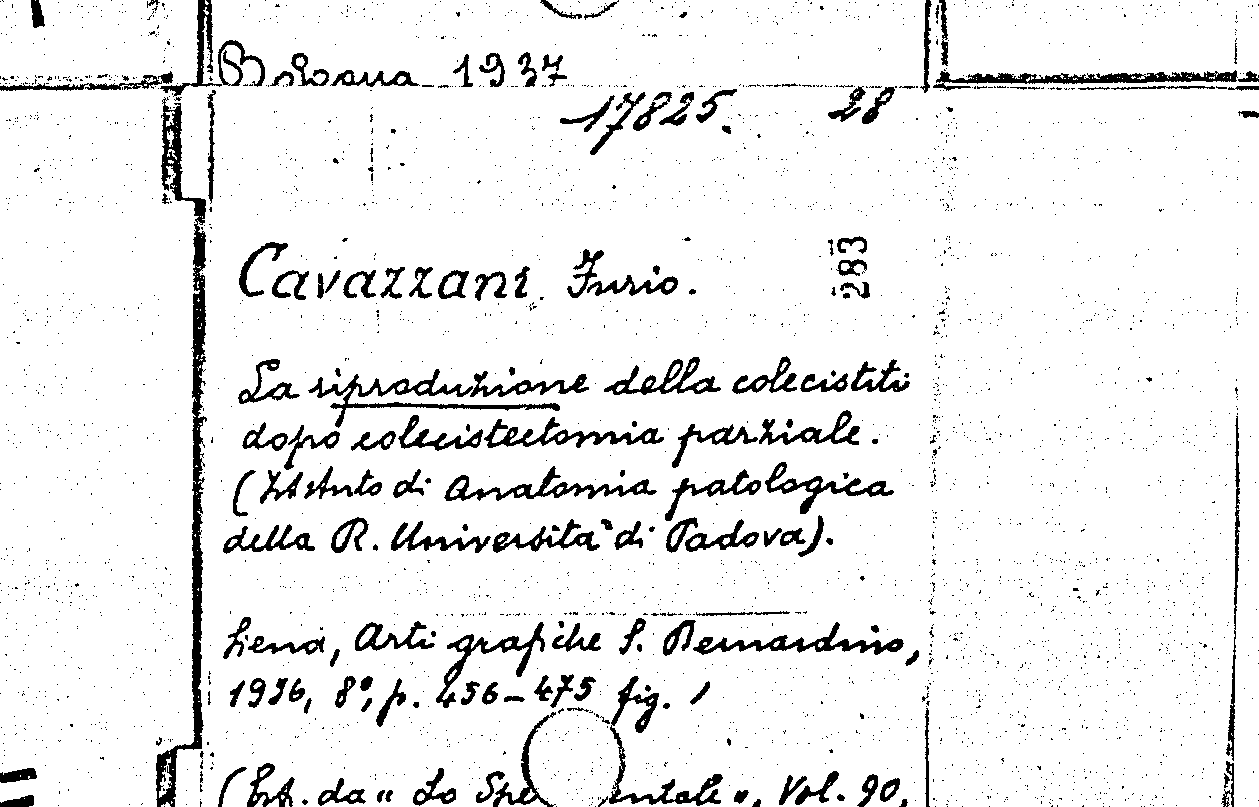 Bologna 1937
17825. 28
Cavazzani Furio.
283
La riproduzione della colecistiti
dopo colecistectomia parziale.
(Istituto di Anatomia patologica
della R. Università di Padova).
Siena, Arti grafiche S. Bernardino,
1936, 8°, p. 456-475 fig. 1
(Est. da "Lo Spe entale", Vol. 90,